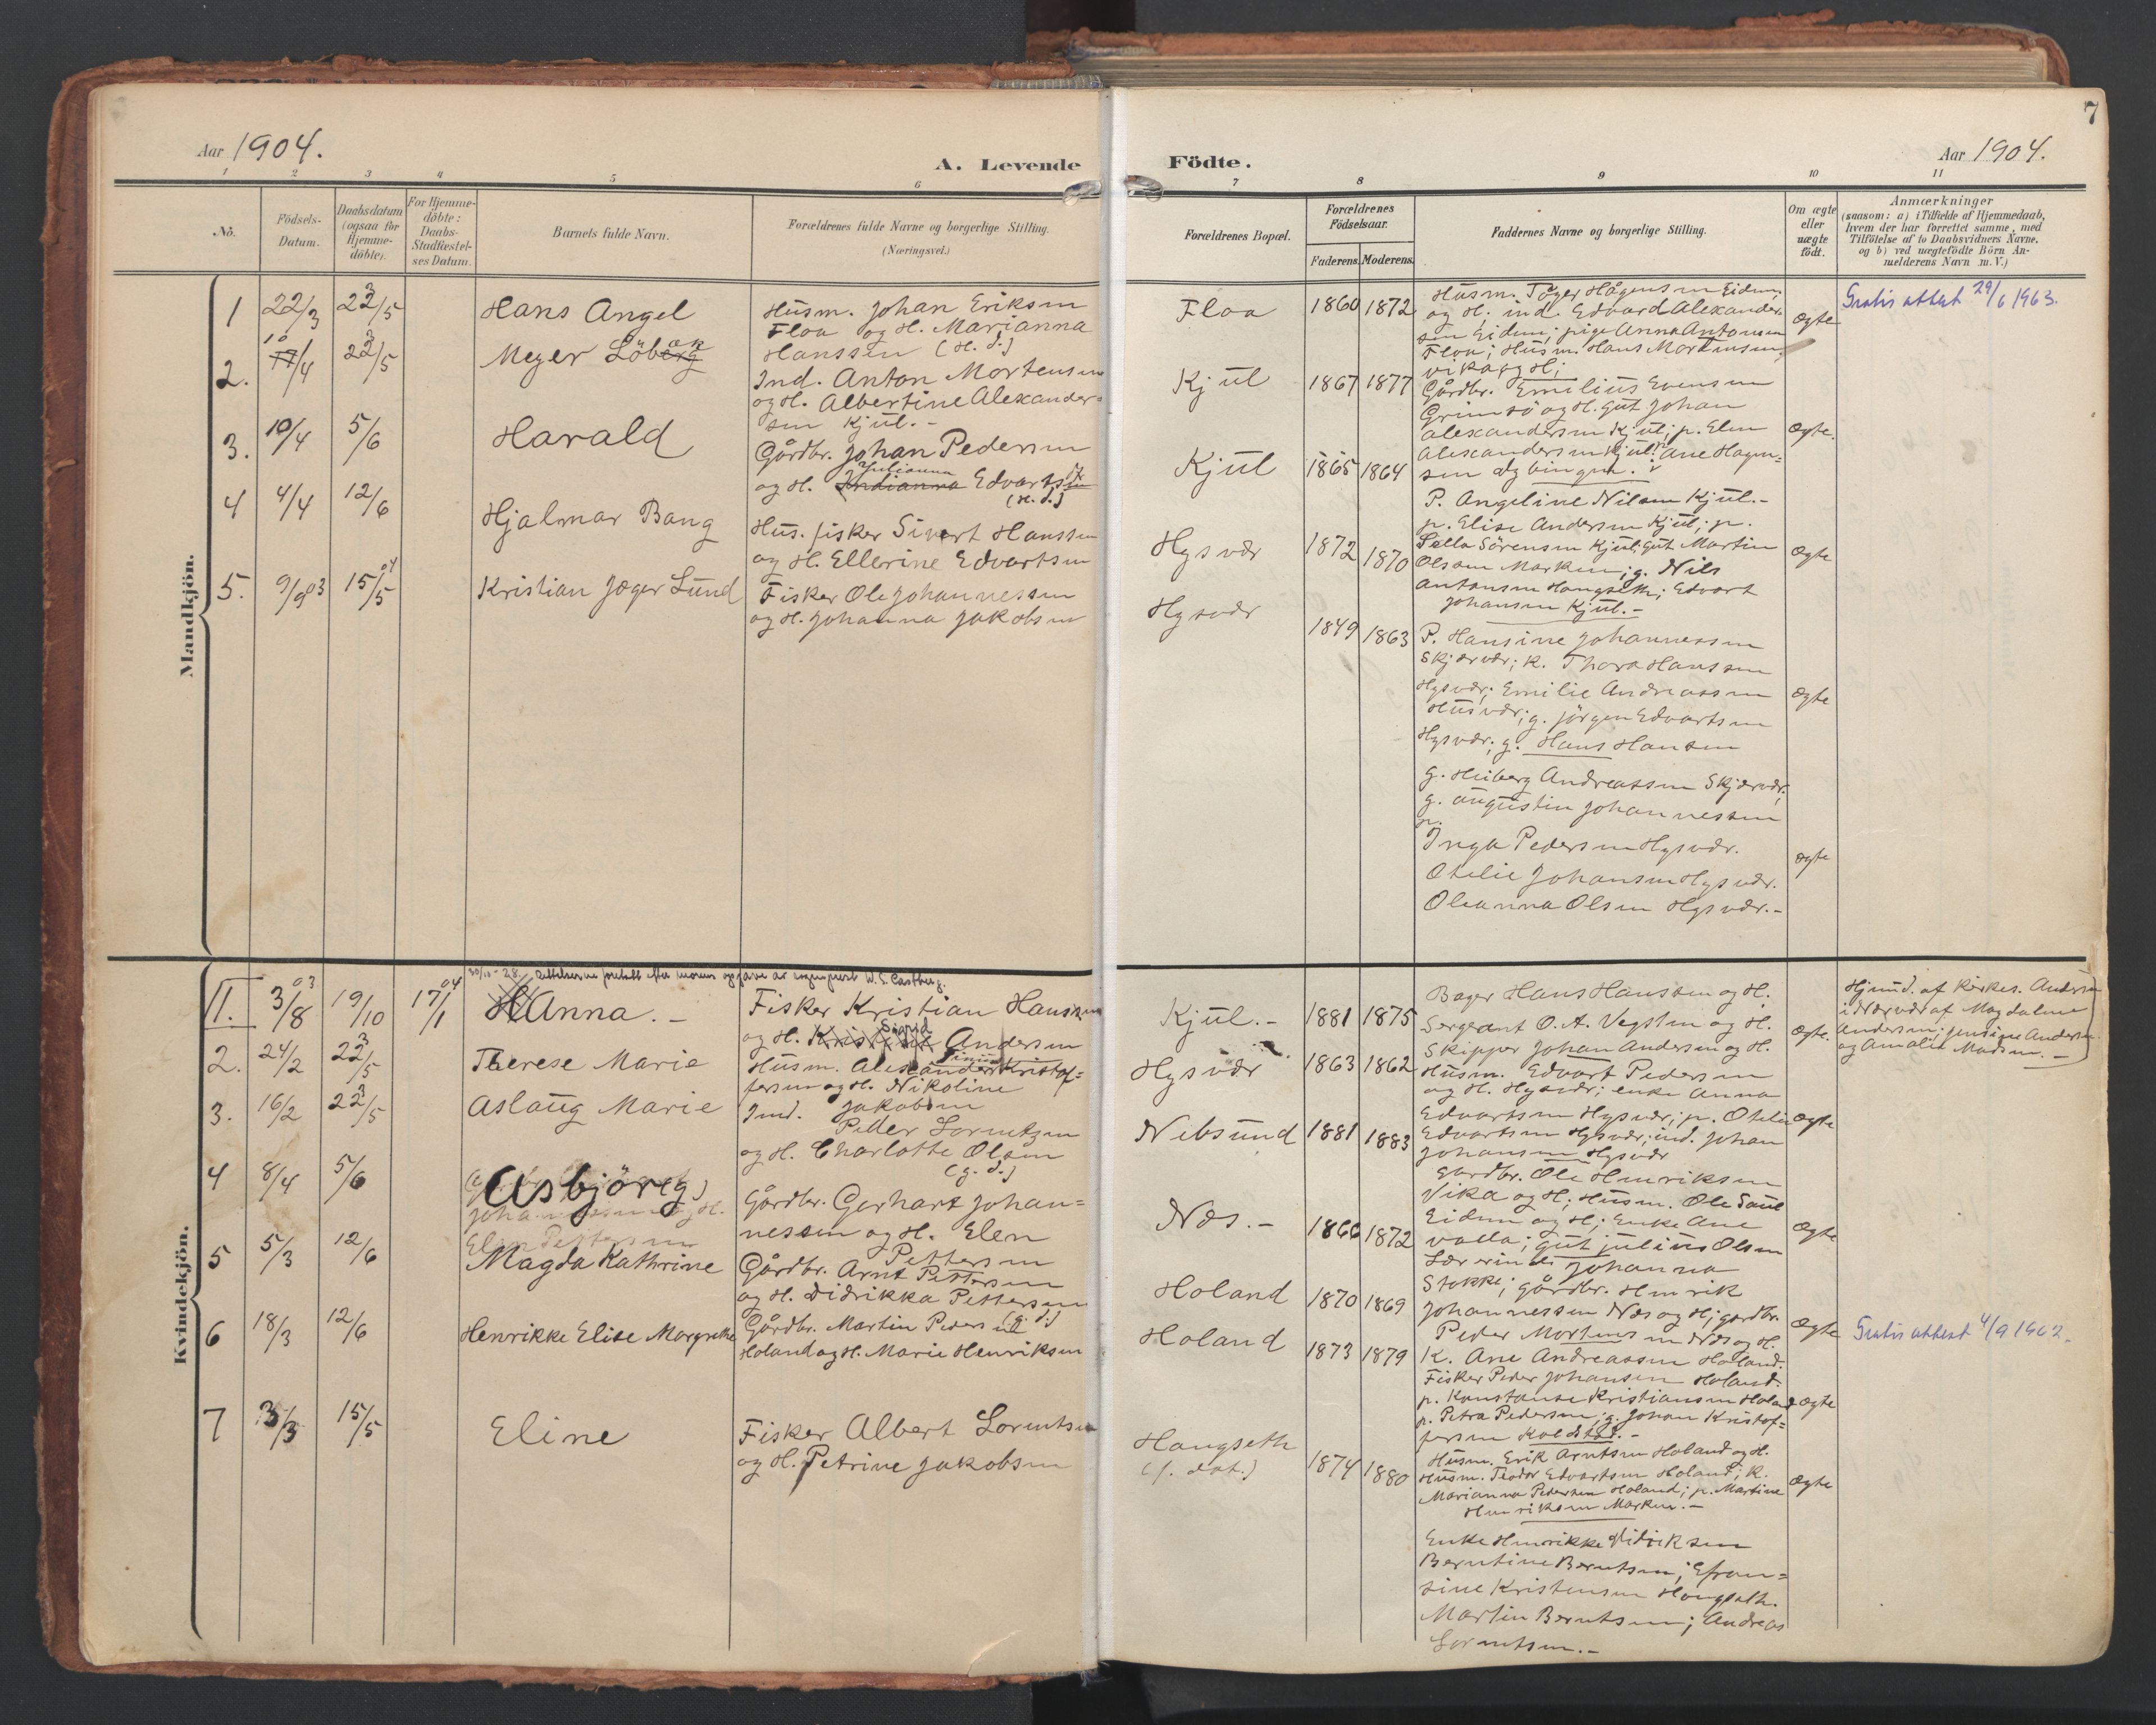 7
Aar 1904.
A. Levende
Födte.
Aar 1904.
1 2 3 4 5 6 7 8 9 10 11
Nô.
Födsels-
Datum.
Daabsdatum
(ogsaa for
Hjemme-
döbte).
For Hjemme-
döbte:
Daabs-
Stadfæstel-
ses Datum.
Barnets fulde Navn.
Forældrenes fulde Navne og borgerlige Stilling.
(Næringsvei.)
Forældrenes Bopæl.
Forældrenes
Födselsaar.
Faderens.
Moderens.
Faddernes Navne og borgerlige Stilling.
Om ægte
eller
uægte
födt.
Anmærkninger
(saasom: a) i Tilfælde af Hjemmedaab,
hvem der har forrettet samme, med
Tilföielse af to Daabsvidners Navne,
og b) ved uægtefödte Börn An-
melderens Navn m. V.)
Mandkjön.
1 22/3 23/5
Hans Angel
Husm. Johan Eriksen
Floa og H. Marianna
Hanssen (H. d.)
Floa
1860 1872
Husm. Töger Hågensen Eidem,
og H. ind. Edvard Alexander-
sen Eidem; pige Anna Antonsen
Floa; Husm. Hans Mortensen,
vika og H;
Ægte
Gratis attest 29/6 1963.
2. 10/4 23/5
Meyer Löbak
Ind. Anton Mortensen
og H. Albertine Alexander=
sen Kjul.-
Kjul
1867 1877
Gårdbr. Emilius Evensen
Grimsö og H. gut Johan
Alexandersen Kjul; p. Elen
Alexandersen Kjul; p. Ane Hagen=
sen
Ægte.
3. 10/4 5/6
Harald
Gårdbr. Johan Pedersen
og H. Julianna Edvarts
(H. d.)
Kjul
1865 1864
P. Angeline Nilsen Kjul.-
p. Elise Andersen Kjul; p.
Sella Sörensen Kjul; gut Martin
Olsen Marken; g. Nils
Antonsen Hongseth; Edvart
Johansen Kjul.-
Ægte
4 4/4 12/6
Hjalmar Bang
Hus. fisker Sivert Hanssen
og H. Ellerine Edvartsen
Hysvær
1872 1870
P. Hansine Johannessen
Skjærvær; K. Thora Hanssen
Hysvær; Emilie Andreassen
Husvær; g. Jörgen Edvartsen
Hysvær; g. Hans Hansen
Ægte
5. 9/9 03 15/5 04
Kristian Jæger Lund
Fisker Ole Johannessen
og H. Johanna Jakobsen
Hysvær
1849 1863
g. Heiberg Andreassen Skjærvær;
g. Augustin Johannessen
p.
Inga Pedersen Hysvær.
Otelie Johansen Hysvær.
Oleanna Olsen Hysvær.-
Ægte
Kvindekjön.
30/10-28. Rettelserne foretatt efter morens opgave av sogneprest W. S. Castberg.
1. 3/8 03 19/10 17/1 04
Hanna.-
Fisker Kristian Hanssen
og H. Sigrid Andersen
Kjul.-
1881 1875
Bager Hans Hanssen og H.
Sergeant O. A. Vegsten og H.
Skipper Johan Andersen og H.
Ægte.
Hjemd. af Kirkes. Andersen
i Nærvær af Magdalene
Andersen; Jensine Andersen
og Amalie Madsen.-
2. 24/2 23/5
Therese Marie
Husm. Alexander Kristof=
fersen og H. Nikoline
Jakobsen
Hysvær
1863 1862
Husm. Edvart Pedersen
og H. Hysvær; enke Anna
Edvartsen Hysvær; p. Otelie
Edvartsen Hysvær; ind. Johan
Johansen Hysvær
Ægte
3. 16/2 23/5
Aslaug Marie
Ind.
Peder Lorentzen
og H. Charlotte Olsen
(g. d.)
Nibsund
1881 1883
Gardbr. Ole Henriksen
Vika og H; Husm. Ole Saul
Eidem og H; Enke Ane
valla; gut Julius Olsen
Ægte
4 8/4 5/6
Asbjör(g)
Gårdbr. Gerhart Johan=
nessen og H. Elen
Pettersen
Næs.-
1866 1872
Lærerinde Johanna
Stokke; gårdbr. Henrik
Johannessen Næs og H; gardbr.
Peder Mortensen Næs og H.
Ægte
5 5/3 12/6
Magda Kathrine
Gårdbr. Arnt Pettersen
og H. Didrikka Pettersen
(g. d.)
Holand
1870 1869
K. Ane Andreassen Holand.
Fisker Peder Johansen Holand.
p. Konstanse Kristiansen Holand
p. Petra Pedersen; g. Johan Kristof=
fersen Koldstad.-
Ægte
Gratis attest 4/9 1962.
6 18/3 12/6
Henrikke Elise Margrethe
Gårdbr. Martin Pedersen
Holand og H. Marie Henriksen
Holand
1873 1879
Husm. Erik Arntsen Holand og H.
Husm. Teodor Edvartsen Holand; K.
Marianna Pedersen Holand; p. Martine
Henriksen Marken.-
Ægte
7 3/3 15/5
Eline
Fisker Albert Lorentsen
og H. Petrine Jakobsen
Hongseth
(f. dat.)
1874 1880
Enke Henrikke Didriksen
Berntine Berntsen; Efran=
sine Kristensen Hongseth.
Martin Berntsen; Andreas
Lorentsen.-